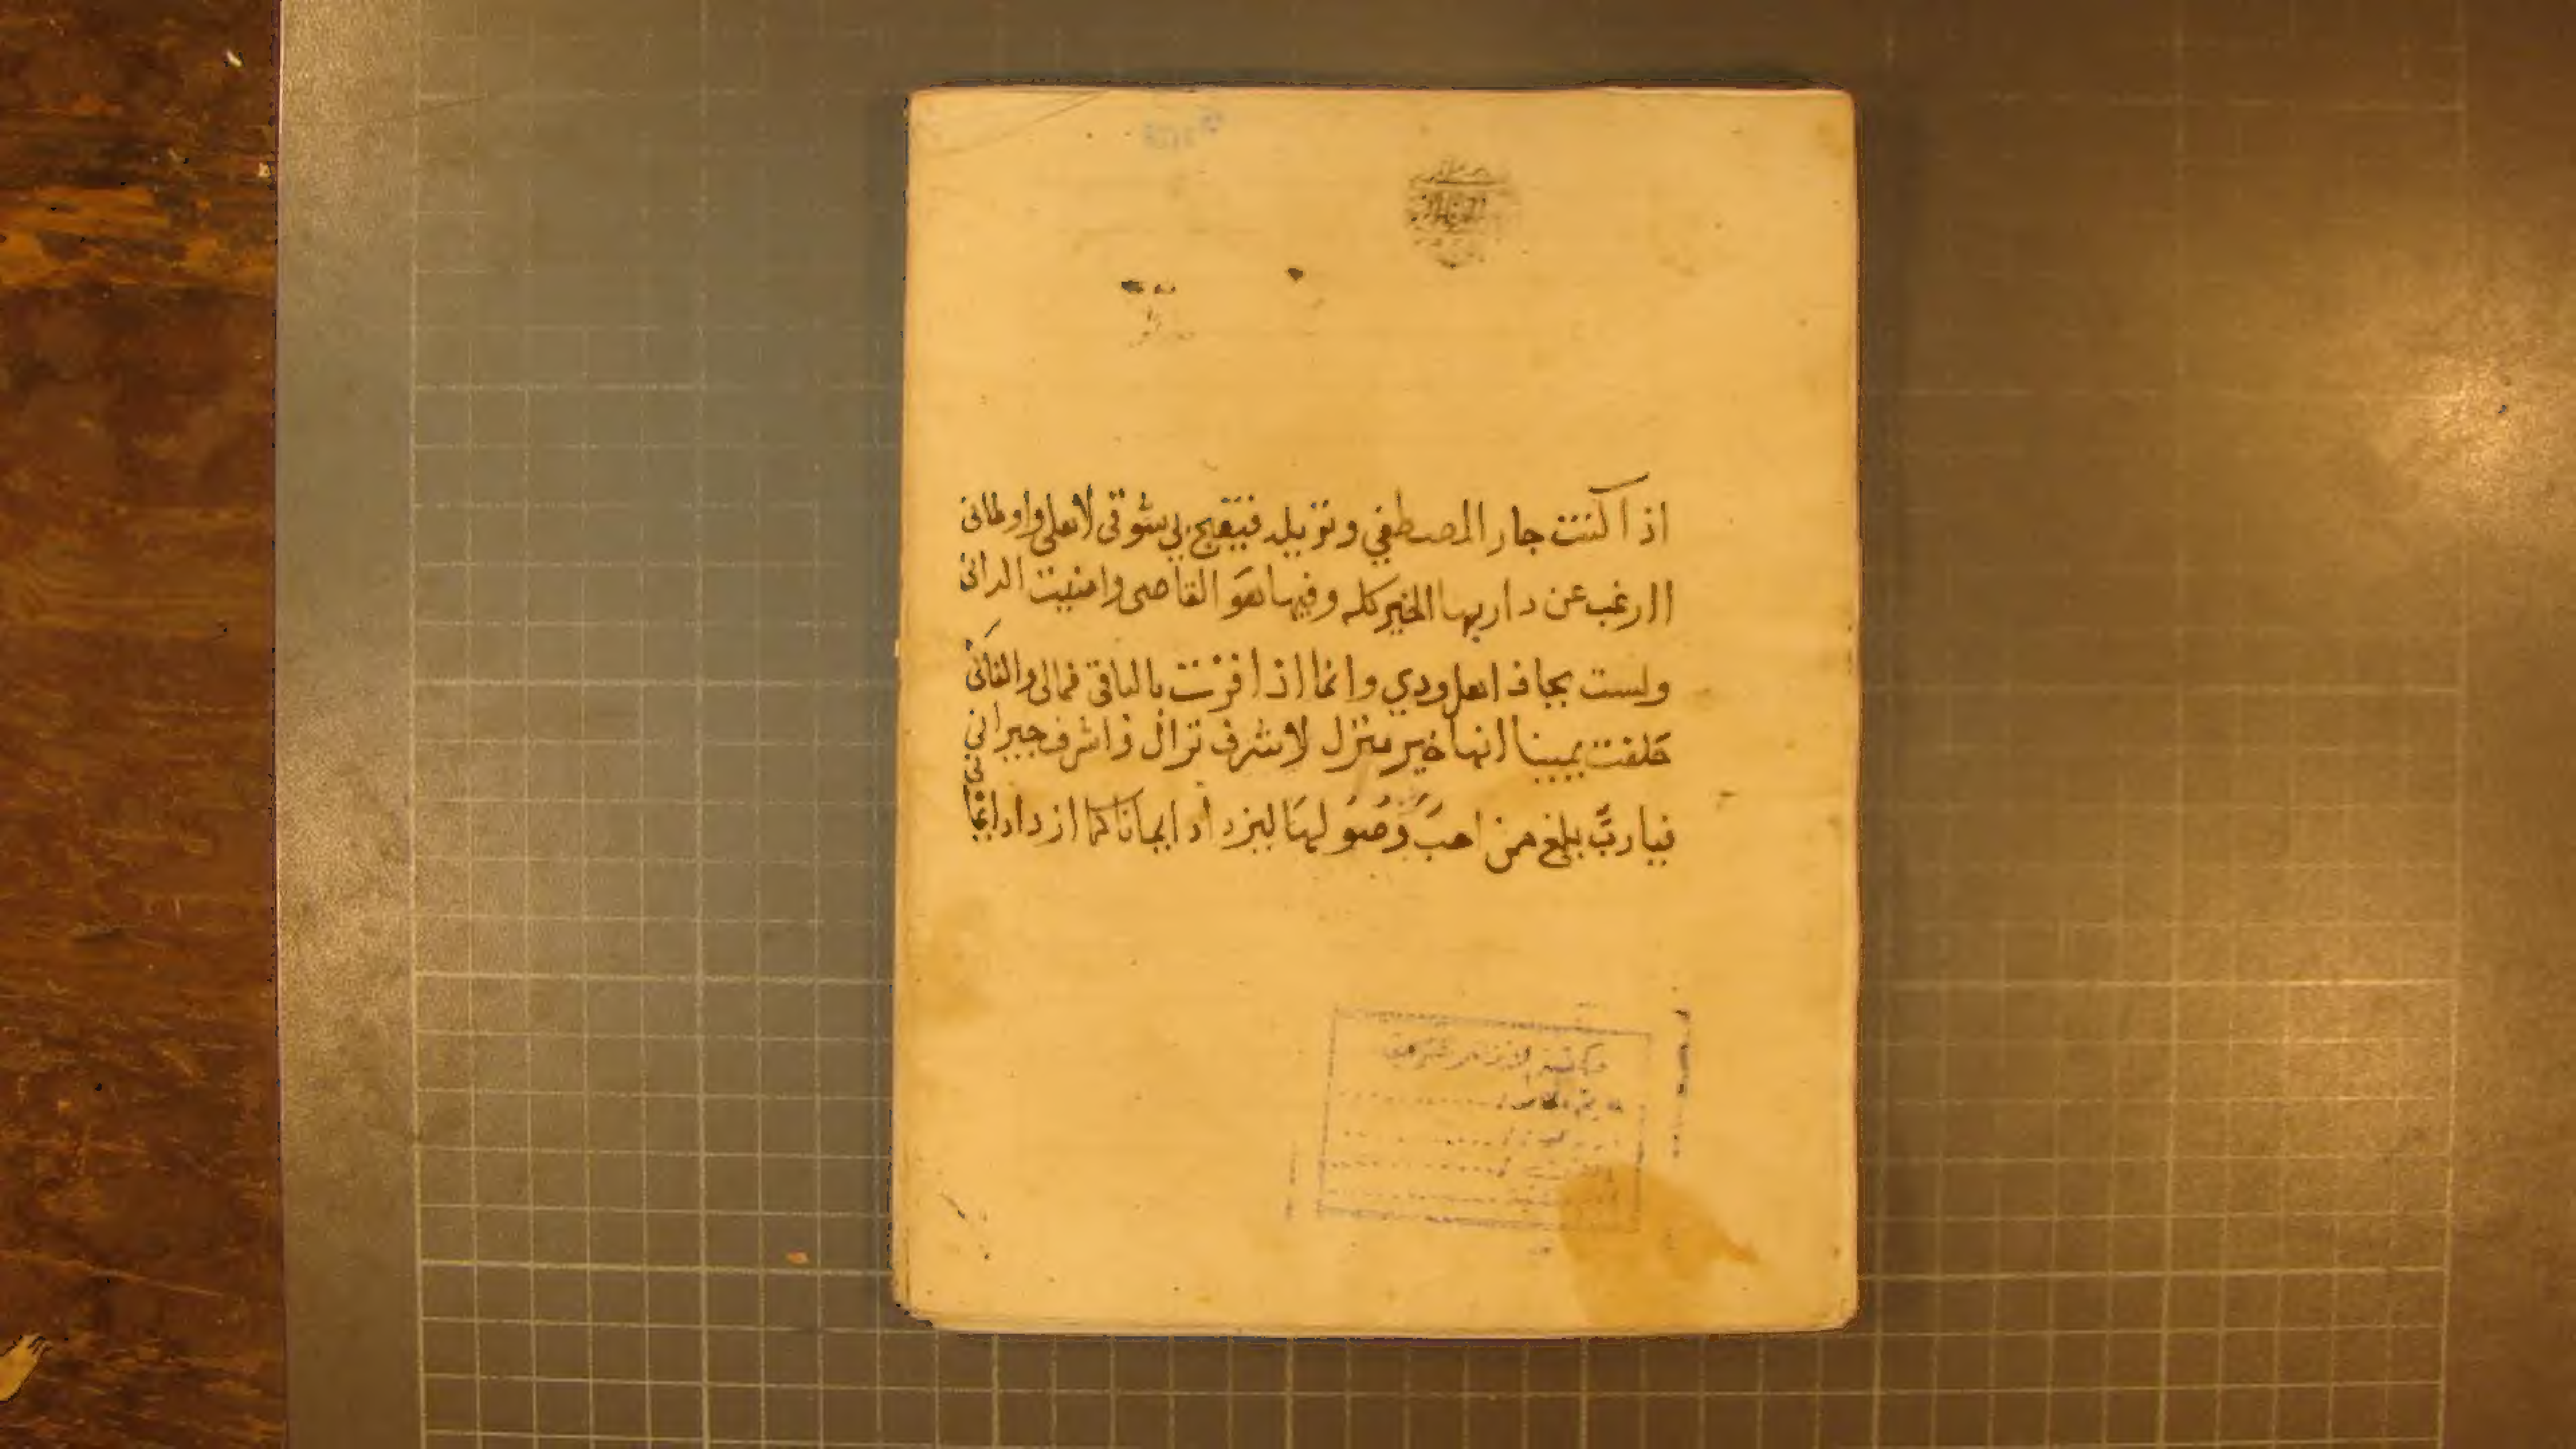 اذا كنت جار المصطفي ونزيله فيقبح بي شوقي لاهلي واوطاني
اارغب عن دار بها الخير كله وفيها هو القاصي وامنيت الداني
ولست بجاف اهل ودي وانما اذا فزت بالباقي فمالي والفاني
حلفت يمينا انها خير منزل لاشرف نزال واشرف جيراني
فيارب بلغ من احب وصولها ليزداد ايمانا كما ازداد ايماني
مكتبة الازهر